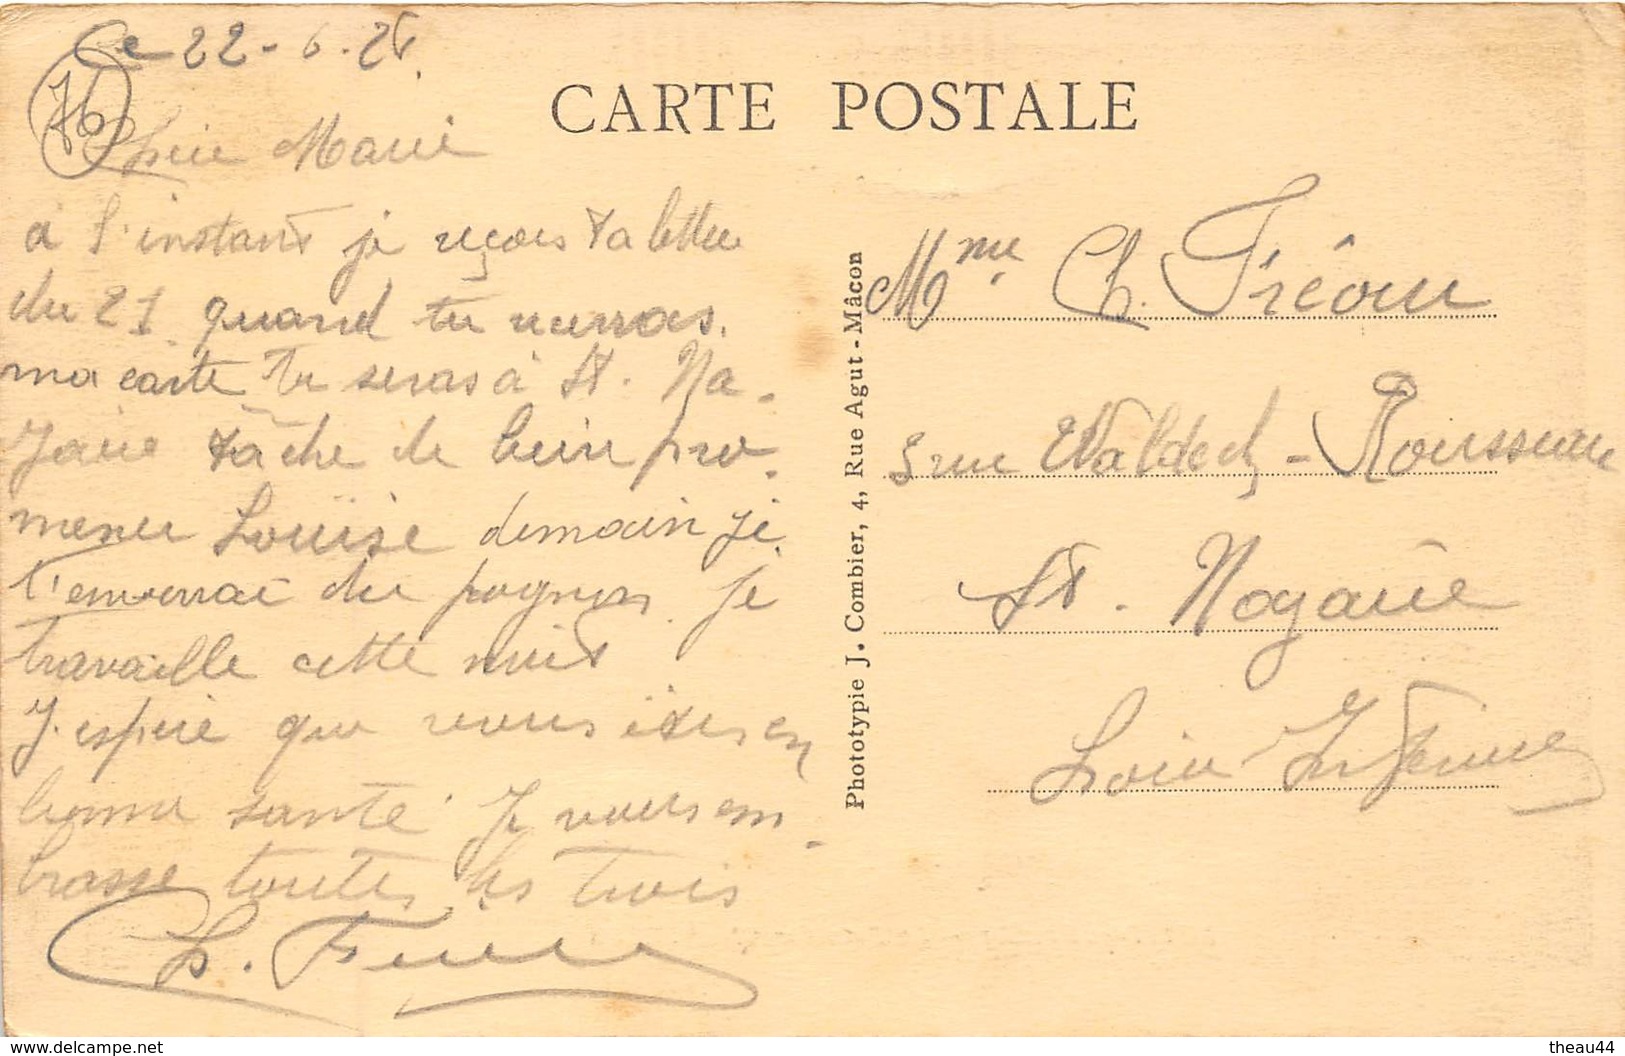 Ce 22-6.26
76
Chère Marie
à l'instant je reçois ta lettre
du 21 quand tu recevras
ma carte tu seras à St. Na-
zaire tâche de bien pro-
mener Louise demain je
t'enverrai du pognon. Je
travaille cette nuit
J'espère que vous êtes en
bonne santé Je vous em-
brasse toutes les trois
Ch.
CARTE POSTALE
Mme Ch. Fréour
5 rue Waldeck-Rousseau
St. Nazaire
Loire Inférieure
Phototypie J. Combier, 4, Rue Agut - Mâcon
www.delcampe.net
theau44